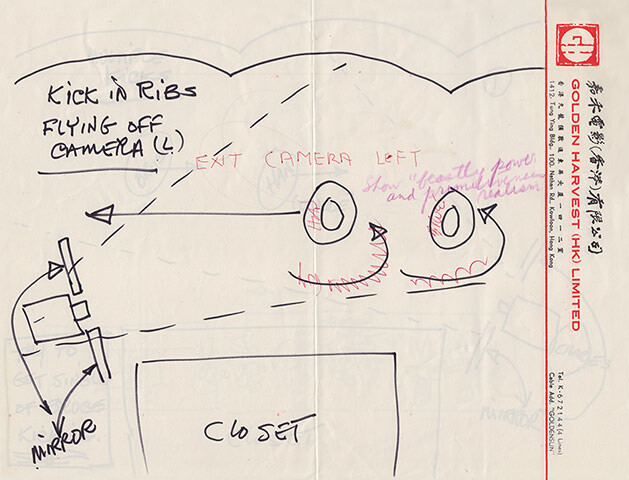 KICK IN RIBS
FLYING OFF
CAMERA (L)
EXIT CAMERA LEFT
show "beastly power
and primitiveness
realism
HAN
MIRROR
CLOSET
嘉禾電影(香港)有限公司
GOLDEN HARVEST (HK) LIMITED
香港九龍彌敦道東英大廈一四一二室
1412, Tung Ying Bldg., 100, Nathan Rd., Kowloon, Hong Kong
Tel. K-672144 (4 Lines)
Cable Add. "GOLDENSUN"